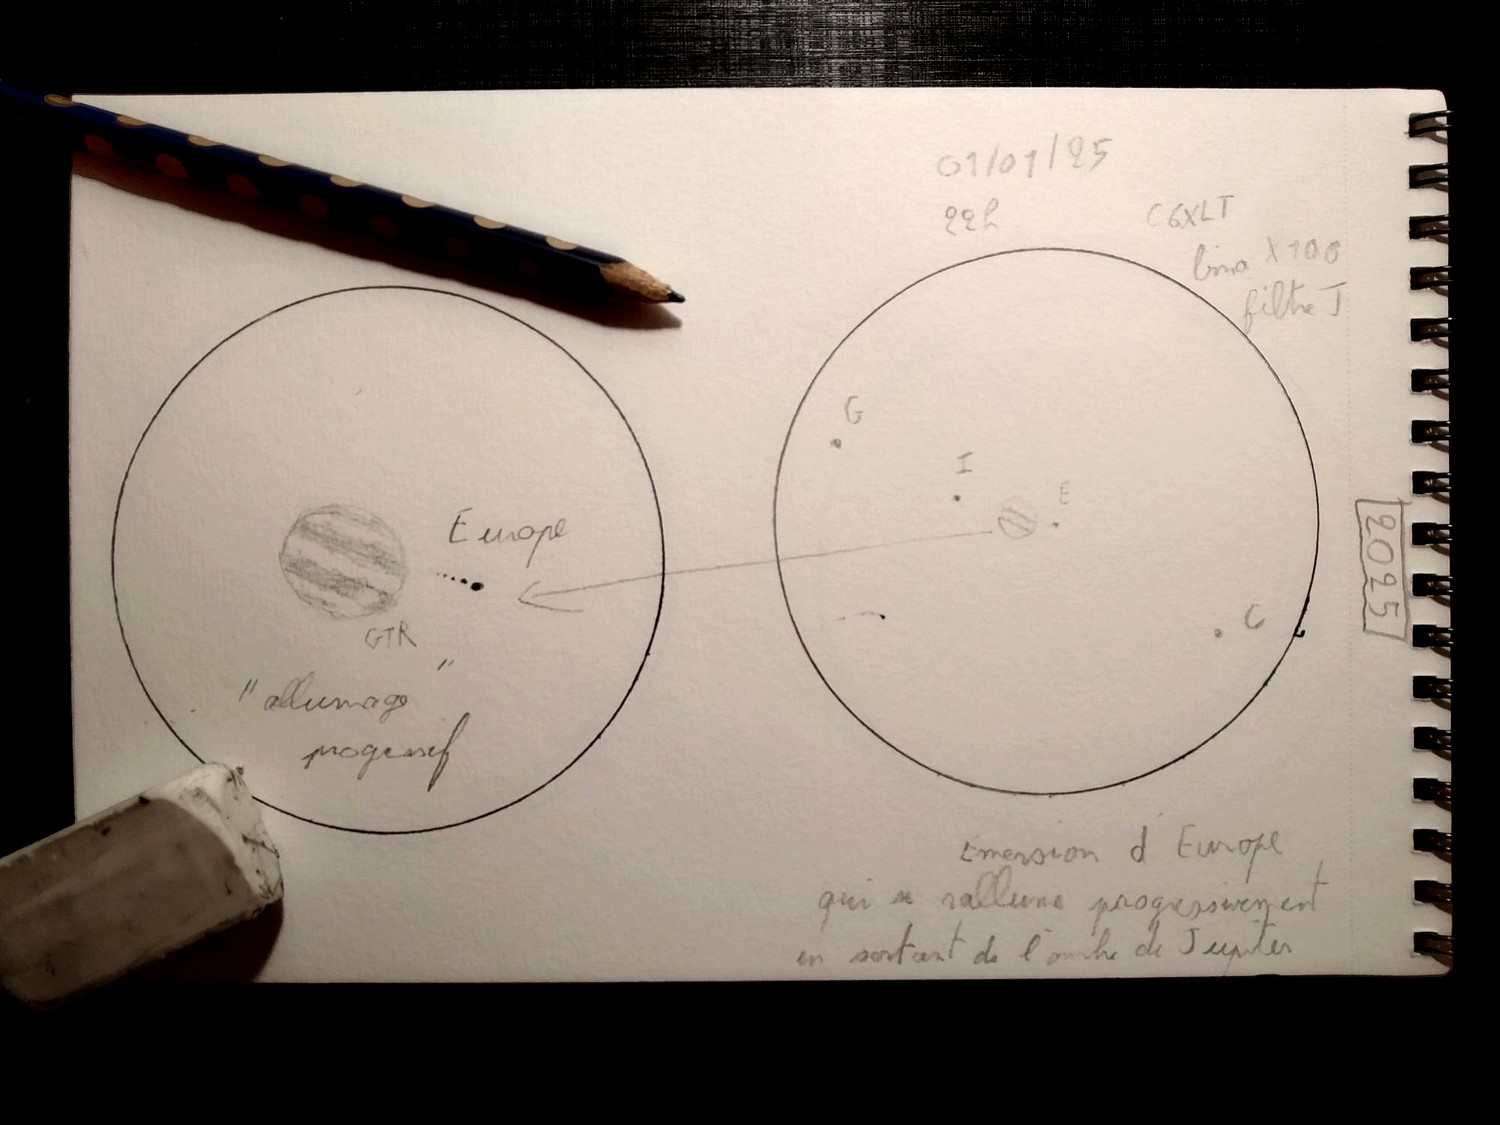 01/01/25
22h
C6XLT
bino X100
filtre J
G
I
E
C
2025
Europe
GTR
"allumage"
progressif
Emersion d'Europe
qui se rallume progressivement
en sortant de l'ombre de Jupiter